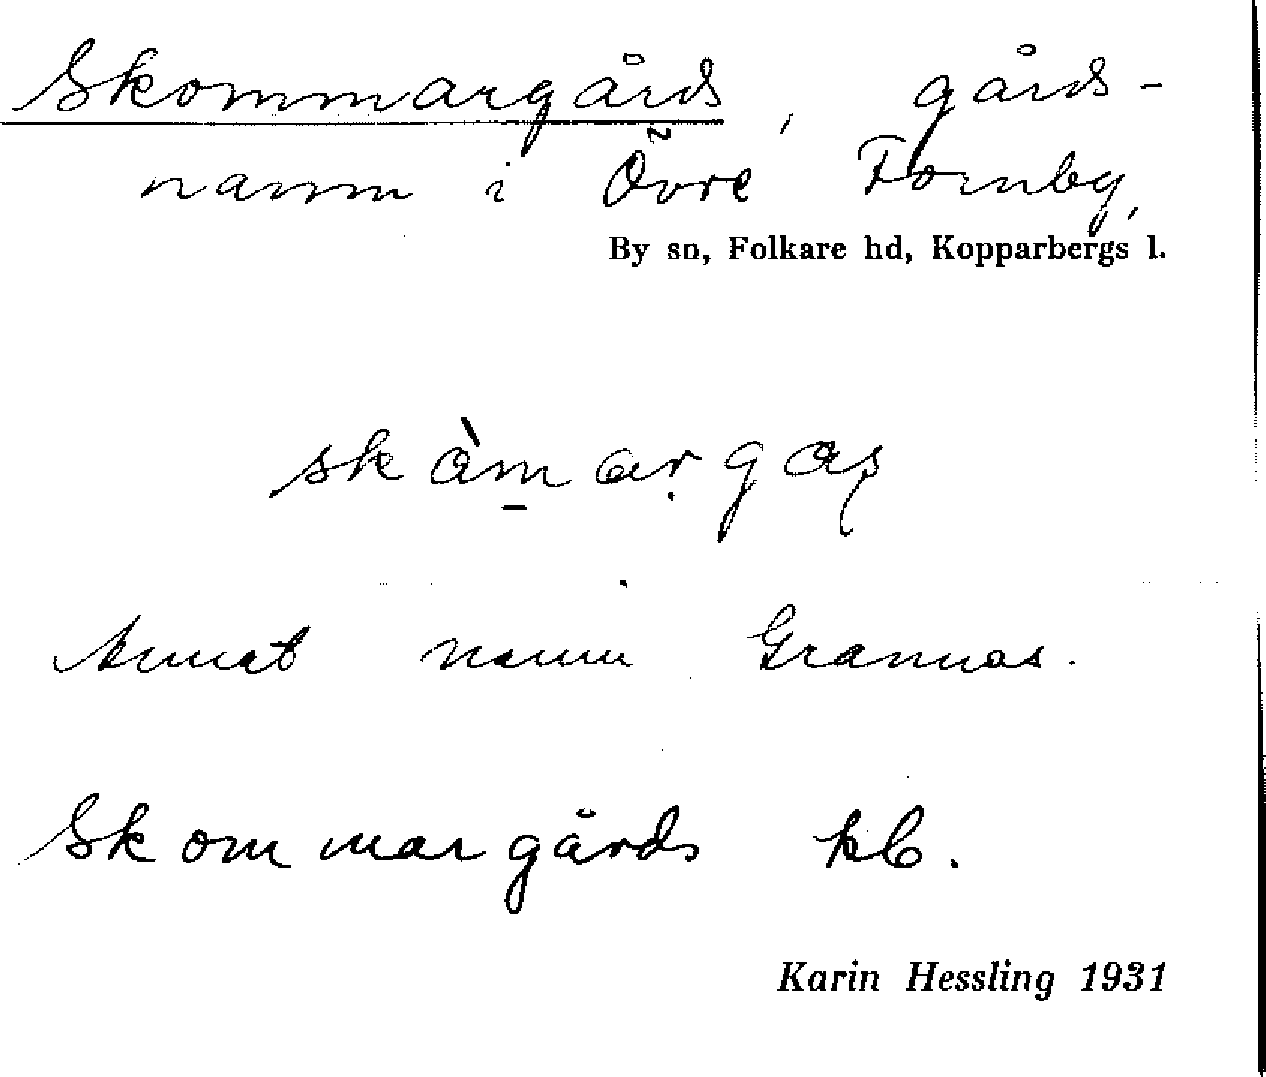 Skommargårds, gårds-
namn i Övre Fornby,
By sn, Folkare hd, Kopparbergs l.
skàmargas
Annat namn Grannas.
Skommargårds kb.
Karin Hessling 1931